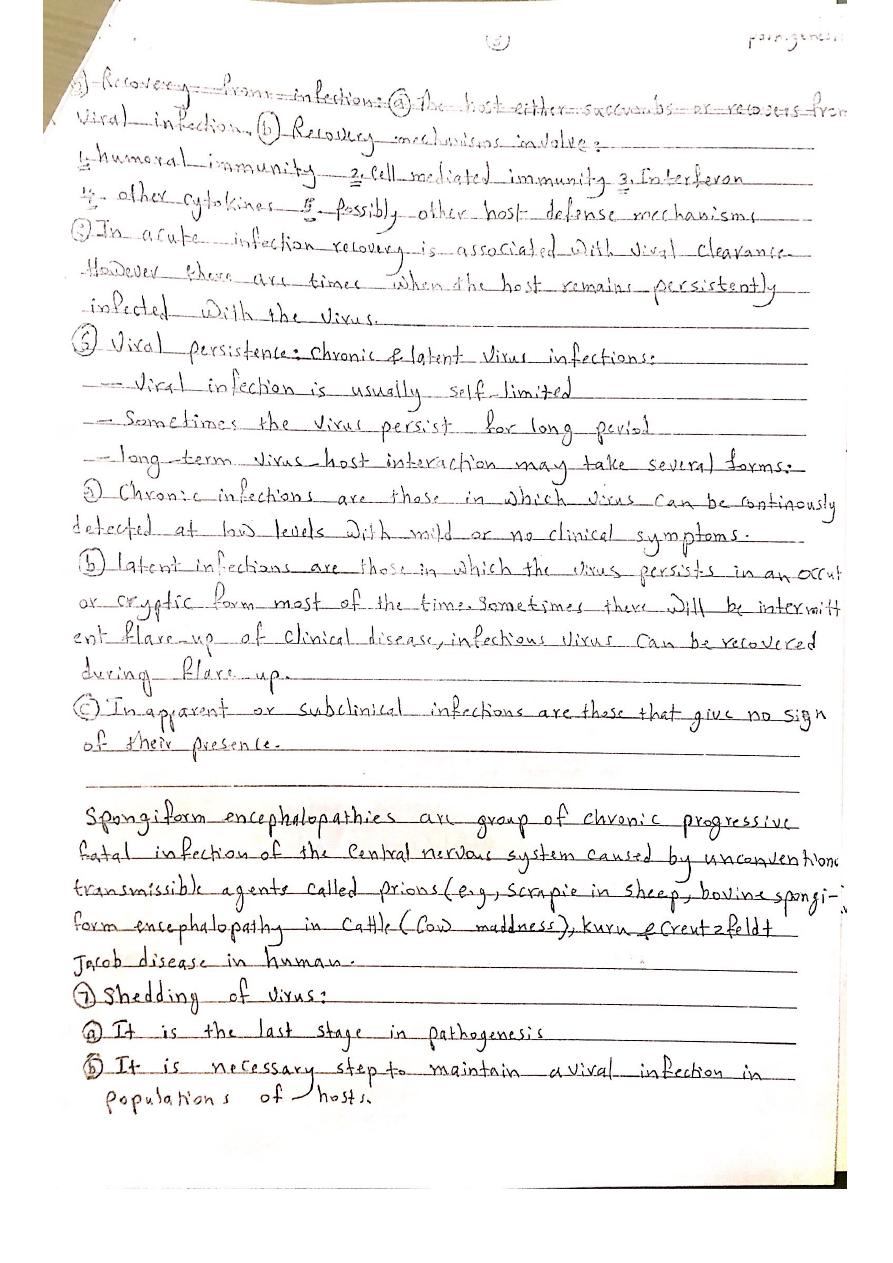 (5) pathogenesis
5) Recovery from infection: (a) The host either succumbs or recovers from
viral infection. (b) Recovery mechanisms involve:
1. humoral immunity 2. Cell mediated immunity 3. Interferon
4. other cytokines 5. possibly other host defense mechanisms
(c) In acute infection recovery is associated with viral clearance.
However there are times when the host remains persistently
infected with the virus.
(6) Viral persistence: chronic & latent virus infections:
— Viral infection is usually self-limited
— Sometimes the virus persist for long period
— long-term virus-host interaction may take several forms:-
(a) Chronic infections are those in which virus can be continously
detected at low levels with mild or no clinical symptoms.
(b) latent infections are those in which the virus persists in an occut
or cryptic form most of the time. Sometimes there will be intermitt
ent flare-up of clinical disease, infectious virus can be recovered
during flare up.
(c) Inapparent or subclinical infections are those that give no sign
of their presence.
Spongiform encephalopathies are group of chronic progressive
fatal infection of the central nervous system caused by unconventiona
transmissible agents called prions (e.g, scrapie in sheep, bovine spongi-
form encephalopathy in cattle (Cow maddness), kuru & Creutzfeldt
Jacob disease in human.
(7) Shedding of virus:
(a) It is the last stage in pathogenesis
(b) It is necessary step to maintain a viral infection in
populations of hosts.